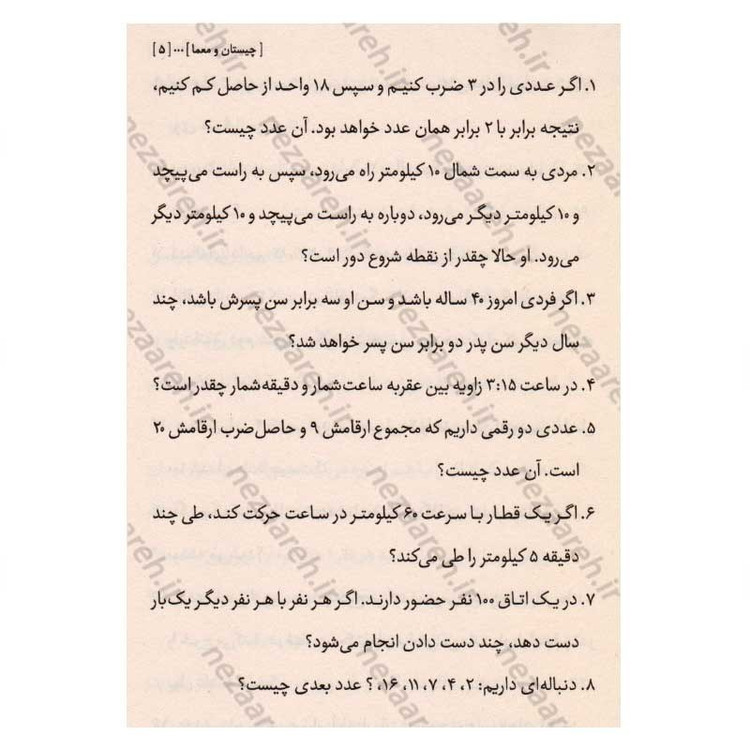 [ چیستان و معما ] ... [ ۵ ]
۱. اگر عددی را در ۳ ضرب کنیم و سپس ۱۸ واحد از حاصل کم کنیم،
نتیجه برابر با ۲ برابر همان عدد خواهد بود. آن عدد چیست؟
۲. مردی به سمت شمال ۱۰ کیلومتر راه می‌رود، سپس به راست می‌پیچد
و ۱۰ کیلومتر دیگر می‌رود، دوباره به راست می‌پیچد و ۱۰ کیلومتر دیگر
می‌رود. او حالا چقدر از نقطه شروع دور است؟
۳. اگر فردی امروز ۴۰ ساله باشد و سن او سه برابر سن پسرش باشد، چند
سال دیگر سن پدر دو برابر سن پسر خواهد شد؟
۴. در ساعت ۳:۱۵ زاویه بین عقربه ساعت‌شمار و دقیقه‌شمار چقدر است؟
۵. عددی دو رقمی داریم که مجموع ارقامش ۹ و حاصل‌ضرب ارقامش ۲۰
است. آن عدد چیست؟
۶. اگر یک قطار با سرعت ۶۰ کیلومتر در ساعت حرکت کند، طی چند
دقیقه ۵ کیلومتر را طی می‌کند؟
۷. در یک اتاق ۱۰۰ نفر حضور دارند. اگر هر نفر با هر نفر دیگر یک‌بار
دست دهد، چند دست دادن انجام می‌شود؟
۸. دنباله‌ای داریم: ۲، ۴، ۷، ۱۱، ۱۶، ؟ عدد بعدی چیست؟
nezaareh.ir